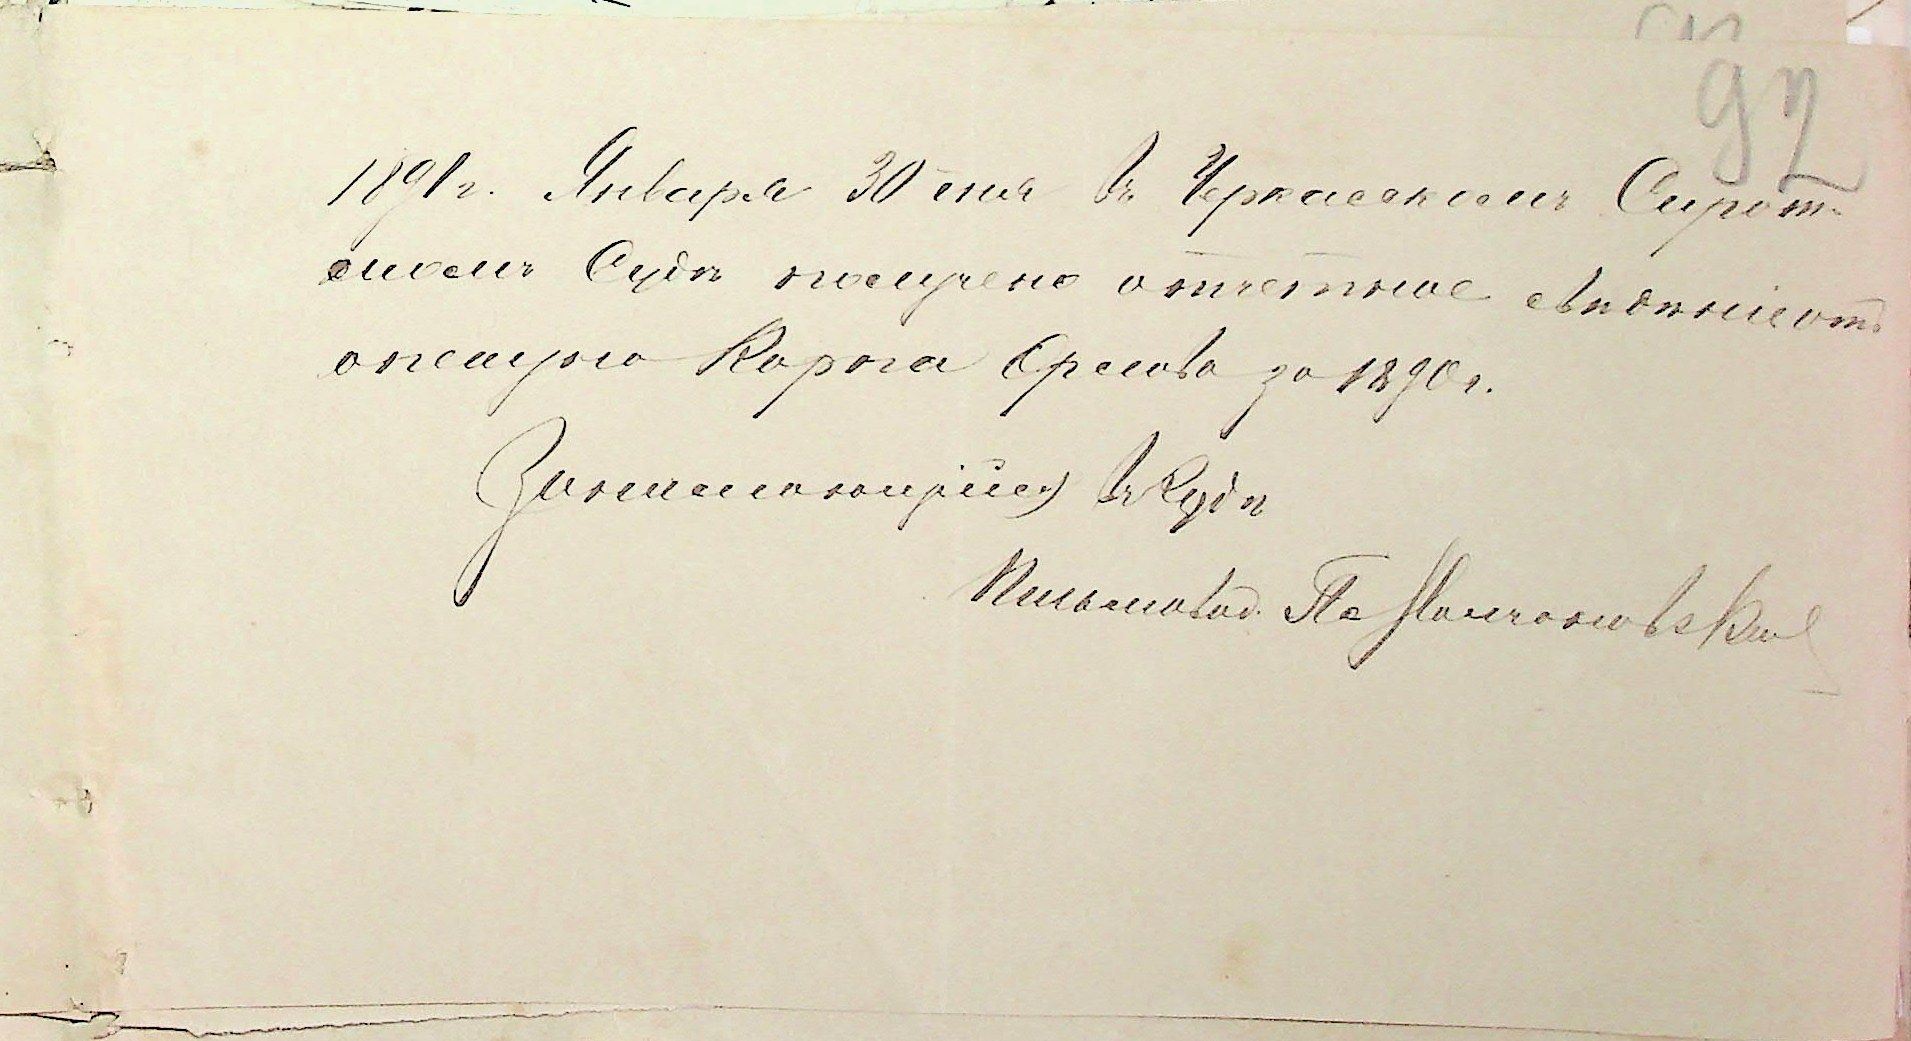 92
1891 г. Января 30 дня въ Черкасскомъ Сирот-
скомъ Судѣ получено отчетное свѣдѣніе отъ
опекуна Карпа Орлова за 1890 г.
въ Судѣ
Письмовод.